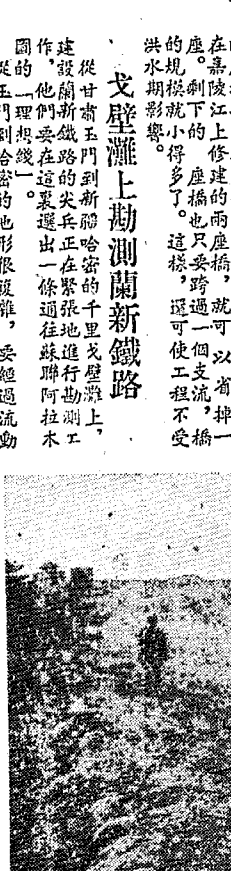 在嘉陵江上修建的兩座橋，就可以省掉一
座。剩下的 座橋也只要跨過一個支流，橋
的規模就小得多了。這樣，還可使工程不受
洪水期影響。
戈壁灘上勘測蘭新鐵路
從甘肅玉門到新疆哈密的千里戈壁灘上，
建設蘭新鐵路的尖兵正在緊張地進行勘測工
作，他們要在這裏選出一條通往蘇聯阿拉木
圖的「理想綫」。
從玉門到哈密的地形很複雜，要經過流動